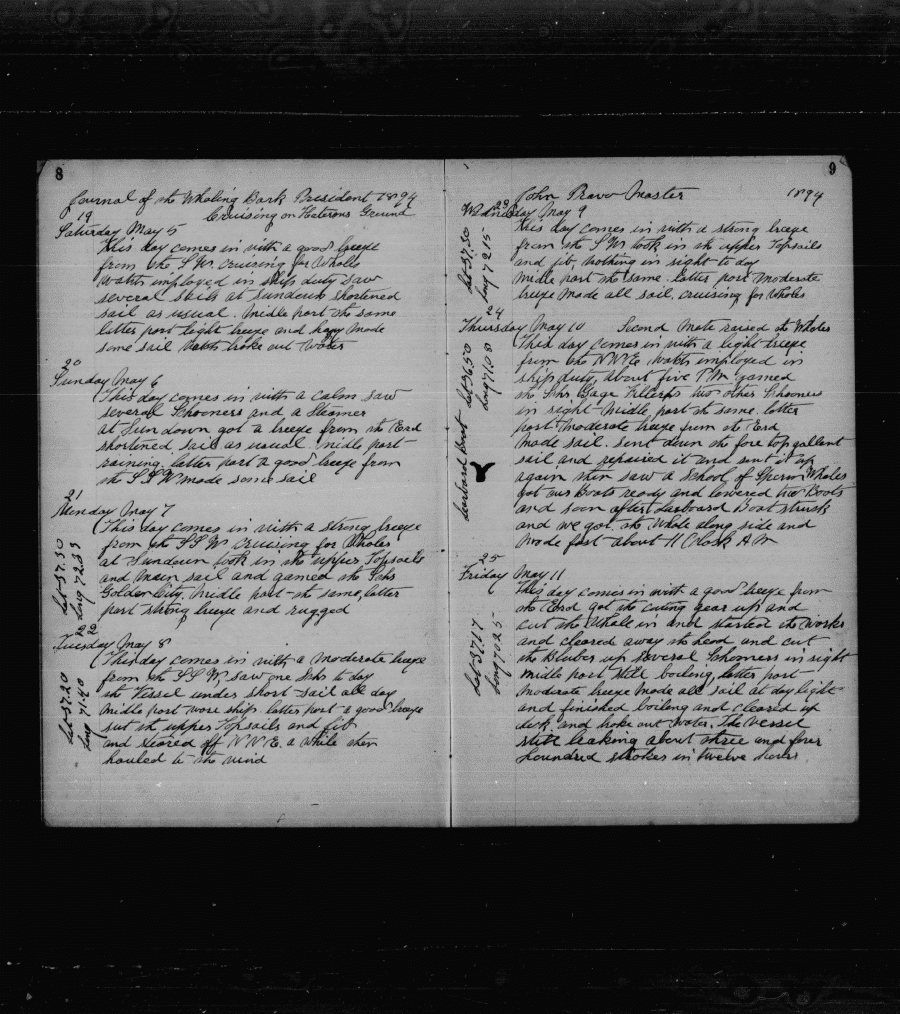 8
Journal of the Whaling Bark President 1894
Cruising on Hateros Ground
19
Saturday May 5
This day comes in with a good breeze
from the S W. cruising for Whales
watch employed in ships duty saw
several sails at sundown shortened
sail as usual. Middle part the same
latter part light breeze and hazy made
some sail broke out Water
20
Sunday May 6
This day comes in with a calm saw
several Schooners and a Steamer
at Sun down got a breeze from the Eard
shortened sail as usual midle part
raining. latter part a good breeze from
the S S W made some sail
21
Monday May 7
Lat 37.30
Long 72.33
This day comes in with a strong breeze
from the S S W cruising for Whales
at Sundown took in the upper Topsails
and Main sail and gamed the Schr
Golden City. Midle part the same, latter
part strong breeze and rugged
22
Tuesday May 8
Lat 37.20
Long 71.40
This day comes in with a Moderate breeze
from the S S W saw one Schr to day
the Vessel under short sail all day
Midle part wore ship. latter part a good breeze
sut the upper Topsails and jib
and steared off N N E. a while then
hauled to the wind
9
John Pravo Master 1894
23
Wednesday May 9
Lat 37.30
Long 72 15
This day comes in with a strong breeze
from the S W. took in the upper Topsails
and jib, nothing in sight to day
Midle part the same. latter part Moderate
breeze Made all sail, cruising for Whales
24
Thursday May 10 Second Mate raised the Whales
Lat 36 50
Long 71.08
Larboard Boat
This day comes in with a light breeze
from the N N E, watch employed in
ship duty, about five P.M. gamed
the Schr. Gage Phillips two other Schooners
in sight. Midle part the same. latter
part moderate breeze from the Eard
Made sail. Sent down the fore top gallant
sail and repaired it and sent it up
again then saw a School of Sperm Whales
got our Boats ready and lowered two Boats
and soon after Larboard Boat struck
and we got the Whale along side and
Made fast about 11 Clock A M
25
Friday May 11
Lat 37.17
Long 70 25
This day comes in with a good breeze from
the Eard got the cuting gear up and
cut the Whale in and started the works
and cleared away the head and cut
the Bluber up several Schooners in sight
midle part still boiling, latter part
moderate breeze Made all sail at day light
and finished boiling and cleared up
deck and broke out water. The vessel
still leaking about three and four
houndred strokes in twelve hours